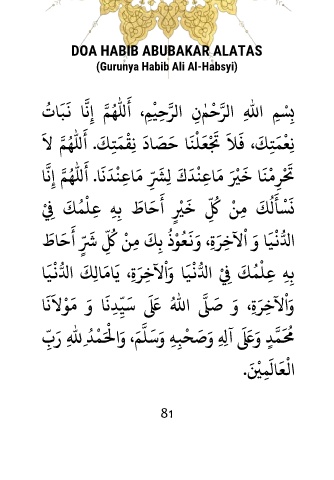 DOA HABIB ABUBAKAR ALATAS
(Gurunya Habib Ali Al-Habsyi)
بِسْمِ اللهِ الرَّحْمٰنِ الرَّحِيْمِ، أَللّٰهُمَّ إِنَّا نَبَاتُ
نِعْمَتِكَ، فَلاَ تَجْعَلْنَا حَصَادَ نِقْمَتِكَ. أَللّٰهُمَّ لاَ
تَحْرِمْنَا خَيْرَ مَاعِنْدَكَ لِشَرِّ مَاعِنْدَنَا. أَللّٰهُمَّ إِنَّا
نَسْأَلُكَ مِنْ كُلِّ خَيْرٍ أَحَاطَ بِهِ عِلْمُكَ فِيْ
الدُّنْيَا وَ اْلآخِرَةِ، وَنَعُوْذُ بِكَ مِنْ كُلِّ شَرٍّ أَحَاطَ
بِهِ عِلْمُكَ فِيْ الدُّنْيَا وَاْلآخِرَةِ، يَامَالِكَ الدُّنْيَا
وَاْلآخِرَةِ، وَ صَلَّى اللهُ عَلَى سَيِّدِنَا وَ مَوْلاَنَا
مُحَمَّدٍ وَعَلَى آلِهِ وَصَحْبِهِ وَسَلَّمَ، وَالْحَمْدُ لِلهِ رَبِّ
الْعَالَمِيْنَ.
81